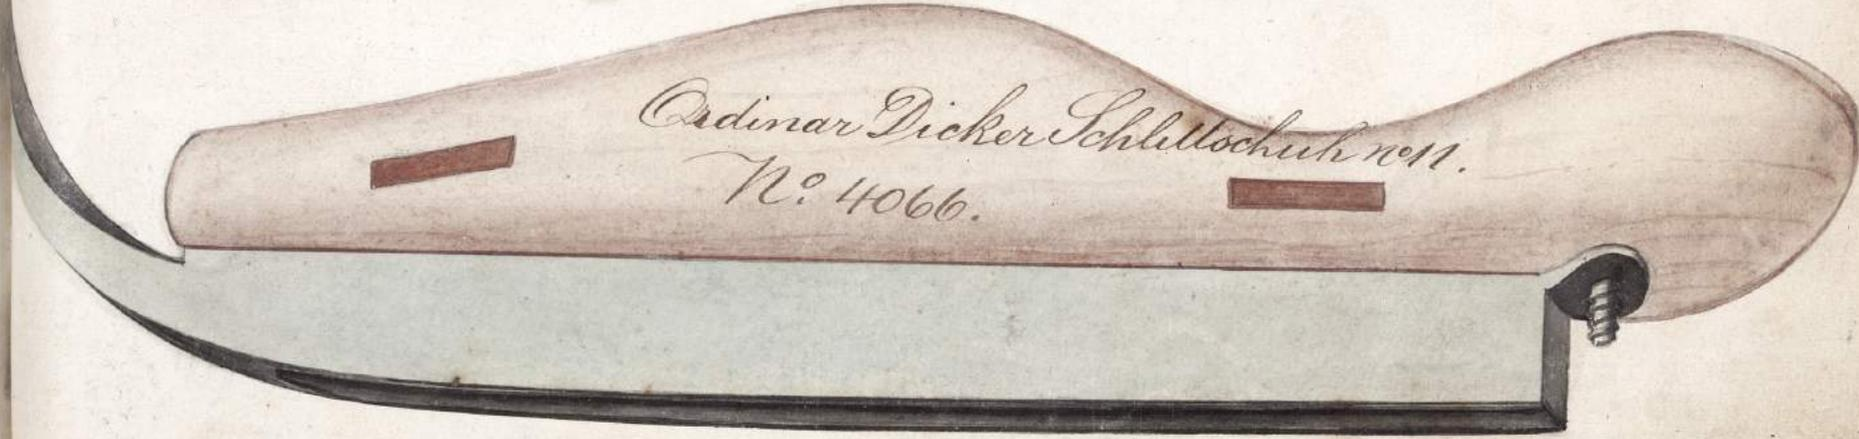 Ordinar Dicker Schlittschuh no 11.
No. 4066.